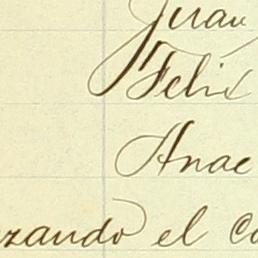 Juan
Felix
Anac
zando el Co